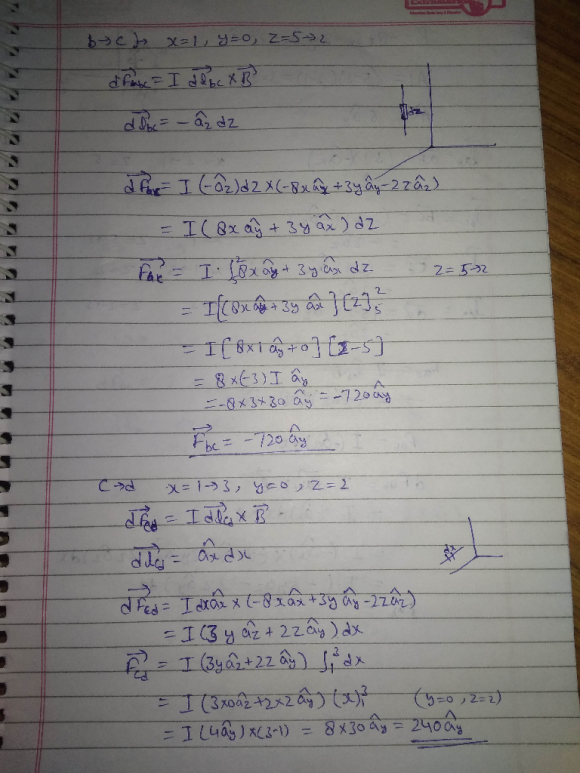 b→c)→ x=1, y=0, z=5→2
dF⃗bc = I dl⃗bc × B⃗
dl⃗bc = -âz dz
dz
dF⃗bc = I (-âz)dz × (-8xâx + 3yây - 2zâz)
= I (8x ây + 3y âx) dz
F⃗bc = I · ∫₅² 8x ây + 3y âx dz z=5→2
= I [(8x ây + 3y âx] [z]₅²
= I [8×1 ây + 0] [2-5]
= 8×(-3) I ây
= -8×3×30 ây = -720 ây
F⃗bc = -720 ây
C→d x=1→3, y=0, z=2
dF⃗cd = I dl⃗cd × B⃗
dl⃗cd = âx dx
dx
dF⃗cd = I dx âx × (-8x âx + 3y ây - 2z âz)
= I (3y âz + 2z ây) dx
F⃗cd = I (3y âz + 2z ây) ∫₁³ dx
= I (3×0 âz + 2×2 ây) (x)₁³ (y=0, z=2)
= I (4ây) × (3-1) = 8×30 ây = 240 ây